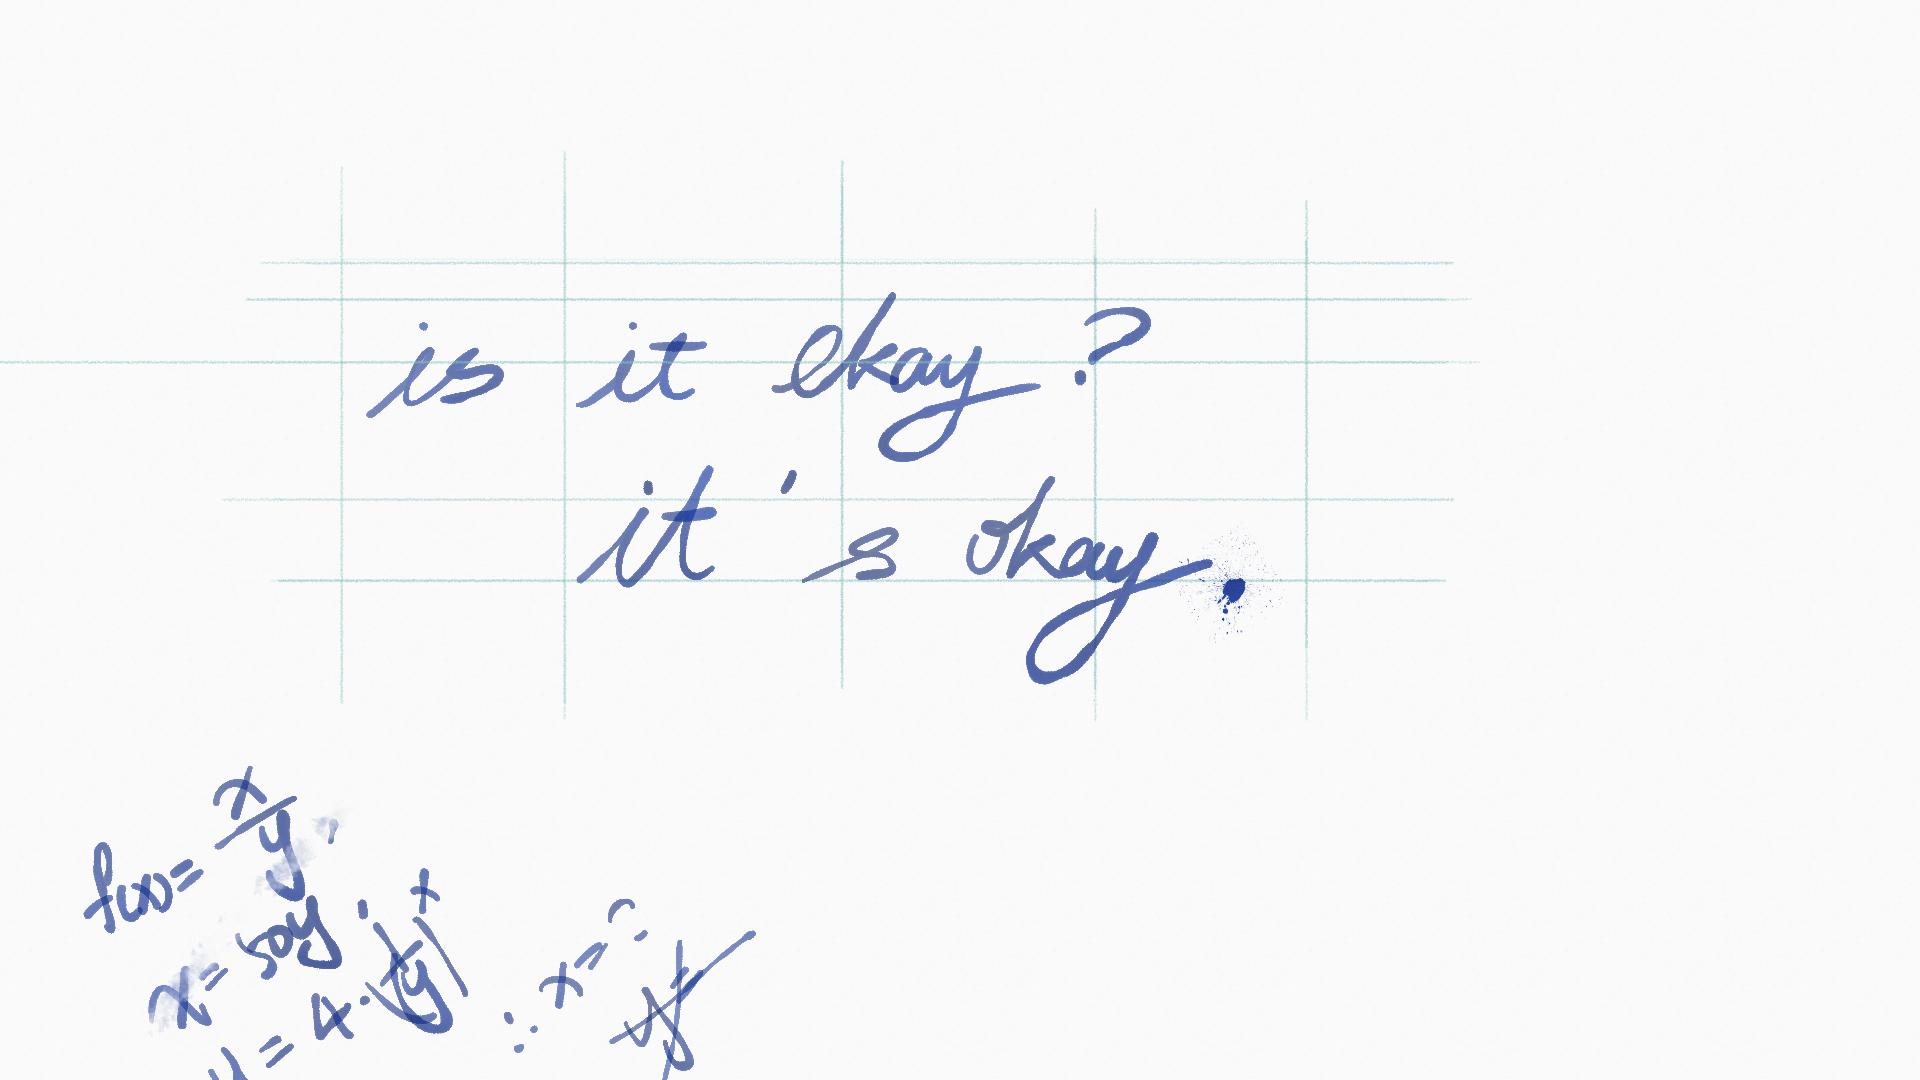 is it okay?
it's okay.
f(x)= x/y,
x= 50y
y = 4·
∴ x = ?